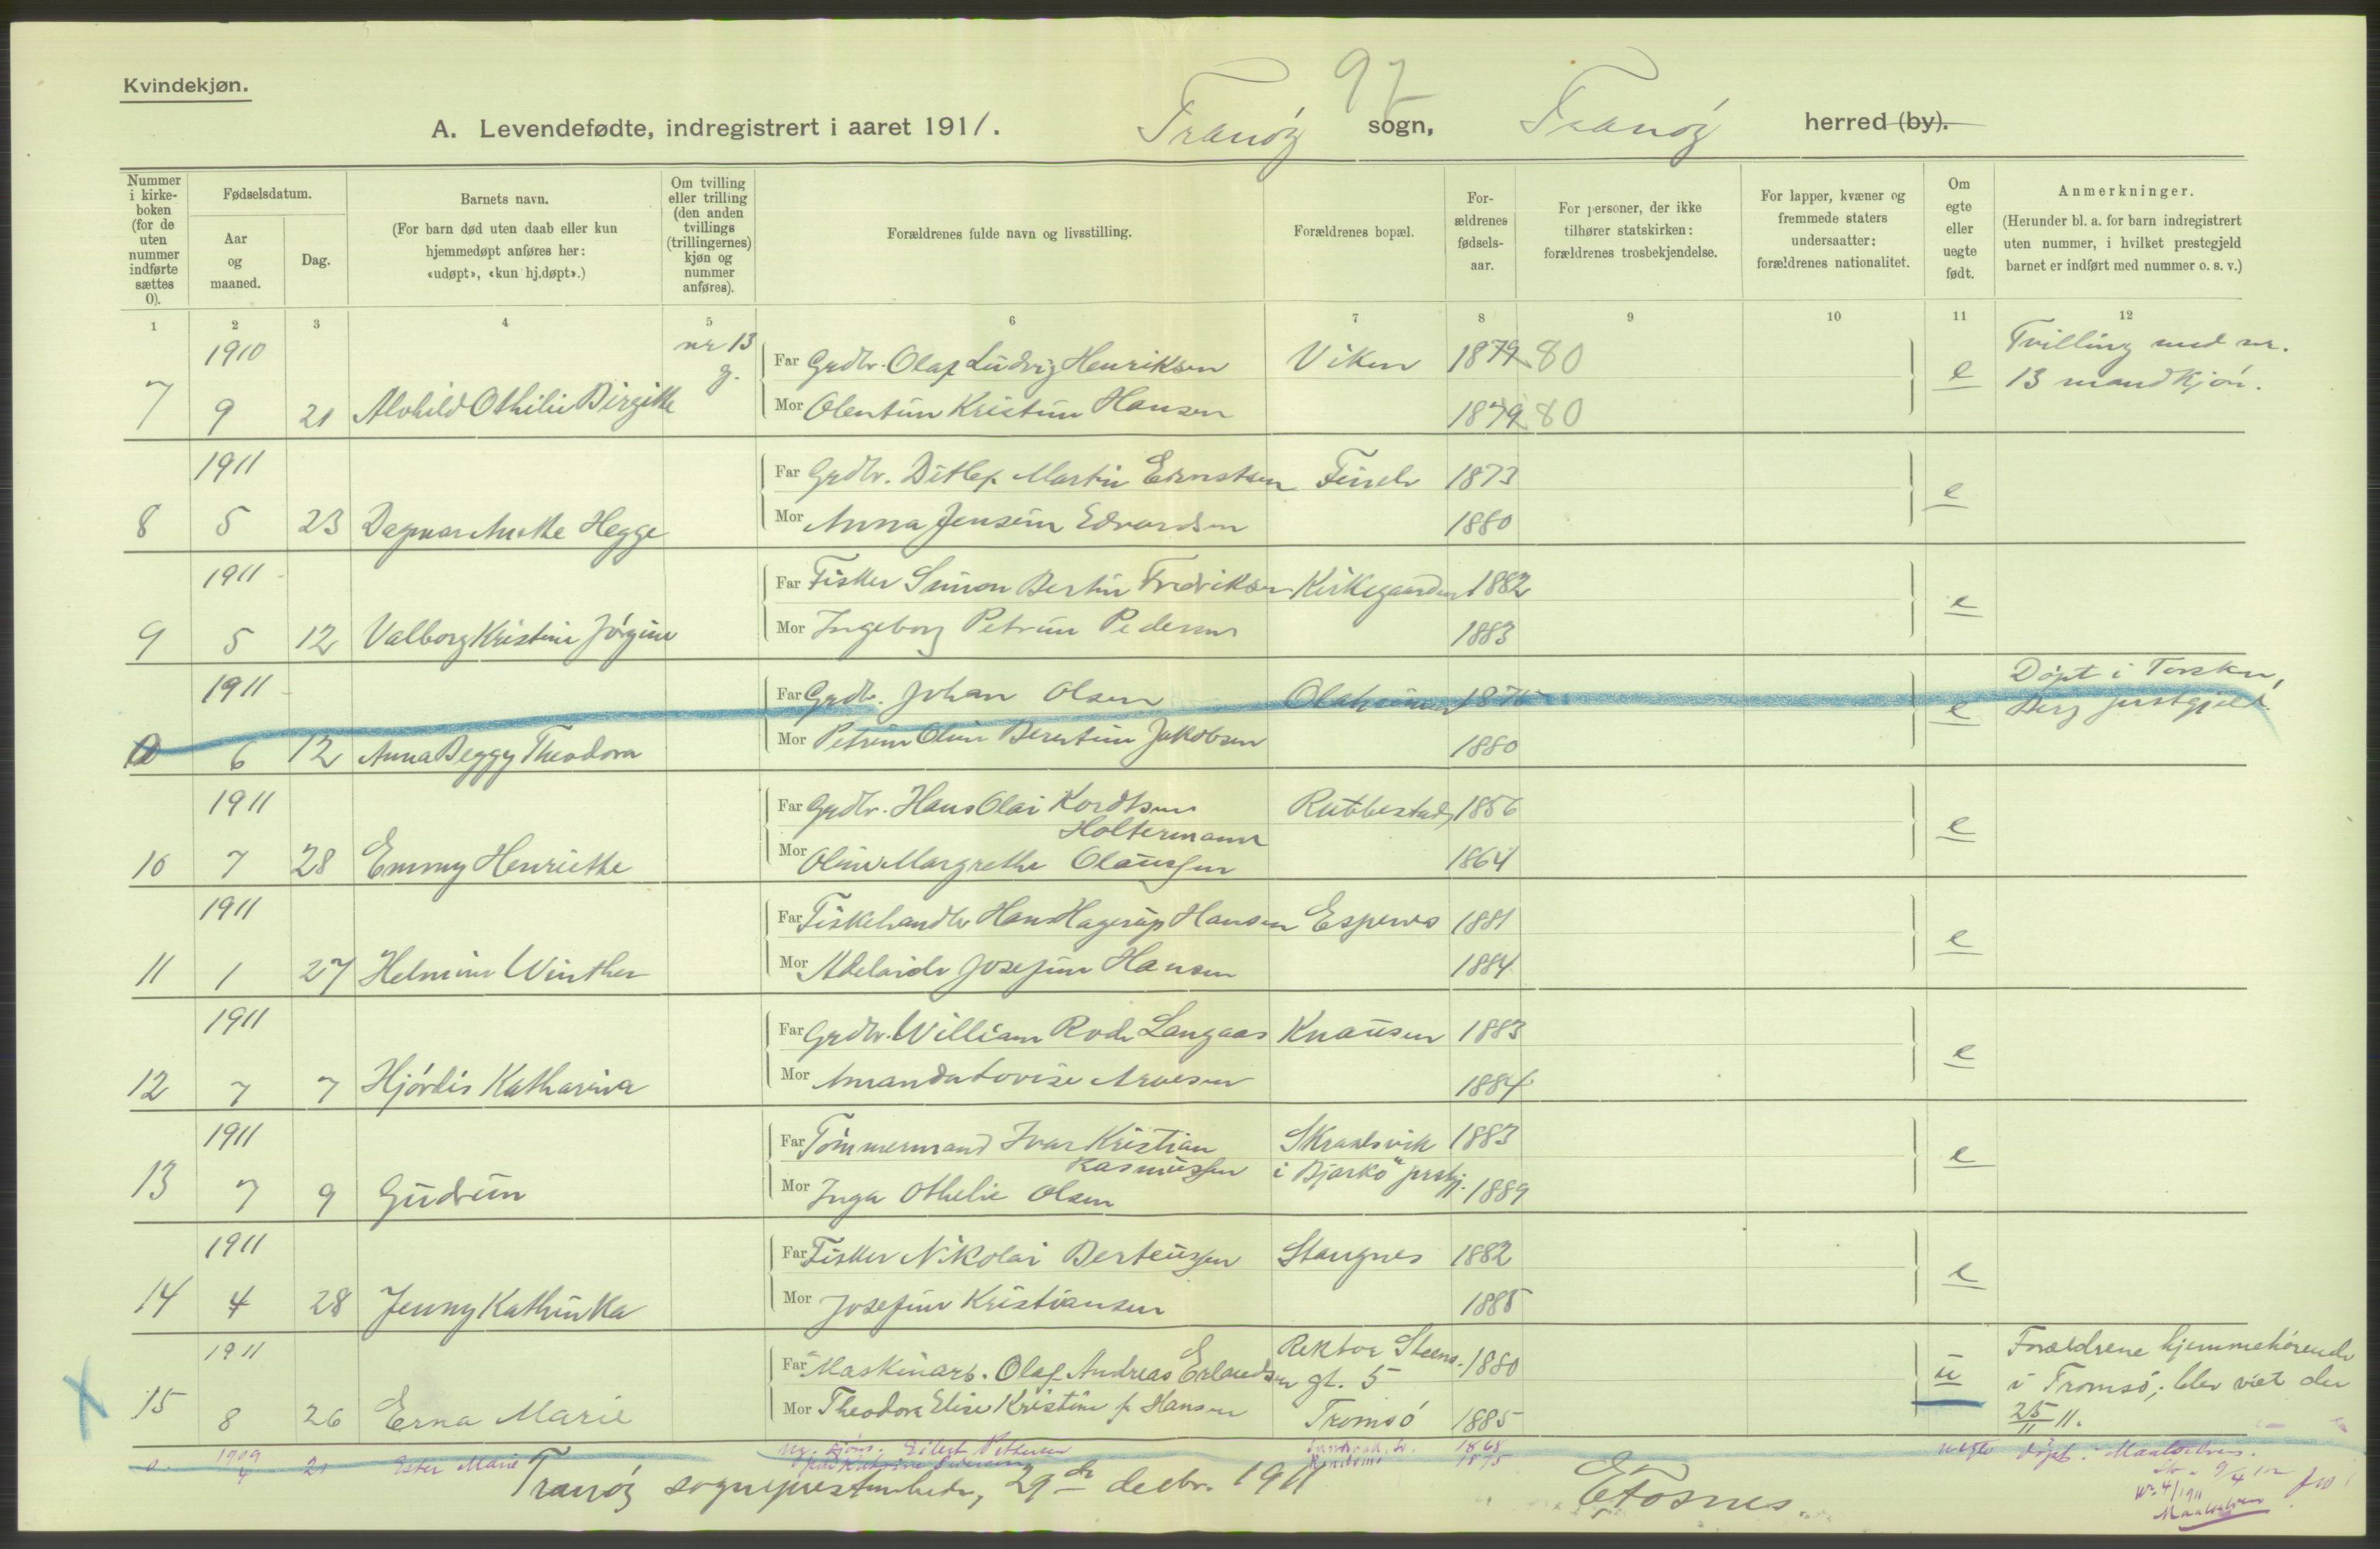 Kvindekjøn.
97
A. Levendefødte, indregistrert i aaret 1911. Tranöy sogn, Tranöy herred (by).
Nummer i kirkeboken (for de uten nummer indførte sættes 0).
Fødselsdatum.
Aar og maaned.
Dag.
Barnets navn.
(For barn død uten daab eller kun hjemmedøpt anføres her: «udøpt», «kun hj.døpt».)
Om tvilling eller trilling (den anden tvillings (trillingernes) kjøn og nummer anføres).
Forældrenes fulde navn og livsstilling.
Forældrenes bopæl.
Forældrenes fødselsaar.
For personer, der ikke tilhører statskirken: forældrenes trosbekjendelse.
For lapper, kvæner og fremmede staters undersaatter: forældrenes nationalitet.
Om egte eller uegte født.
Anmerkninger.
(Herunder bl. a. for barn indregistrert uten nummer, i hvilket prestegjeld barnet er indført med nummer o. s. v.)
1 2 3 4 5 6 7 8 9 10 11 12
1910 nr 13 g. Far Grdbr. Olaf Ludvig Henriksen Viken 1879 80 e Tvilling med nr. 13 mandkjön.
7 9 21 Alvhild Othilie Birgitte Mor Olentine Kristine Hansen 1879 80
1911 Far Grdbr. Ditlef Martin Ernstsen 1873 e
8 5 23 Dagmar Anette Hegge Mor Anna Jensine Edvardsen 1880
1911 Far Fisker Simon Bertin Fredriksen Kirkegaarden 1882 e
9 5 12 Valborg Kristine Jörgine Mor Ingeborg Petrine Pedersen 1883
1911 Far Grdb. Johan Olsen Olaheimen 1876 e Döpt i Torsken, Berg prestgjeld.
0 6 12 Anna Beggy Theodora Mor Petrine Oline Berntine Jakobsen 1880
1911 Far Grdbr. Hans Olai Kordtsen Holtermann Rubbestad 1856 e
10 7 28 Emmy Henriette Mor Oline Margrethe Olaussen 1864
1911 Far Fiskehandler Hans Hagerup Hansen Espenes 1881 e
11 1 27 Helmine Winther Mor Adelaide Josefine Hansen 1884
1911 Far Grdbr. William Rode Langaas Knausen 1883 e
12 7 7 Hjördis Katharina Mor Amanda Lovise Arnesen 1884
1911 Far Tömmermand Ivar Kristian Rasmussen Skrolsvik i Bjarkö prstgj. 1883 e
13 7 9 Gudrun Mor Inga Othelie Olsen 1889
1911 Far Fisker Nikolai Berteussen Stangnes 1882 e
14 4 28 Jenny Kathinka Mor Josefine Kristiansen 1885
1911 Far Maskinarb. Olaf Andreas Erlandsen Rektor Steens gt. 5 1880 u Forældrene hjemmehörende i Tromsö; blev viet den 25/11 11.
15 8 26 Erna Marie Mor Theodora Elise Kristine f. Hansen Tromsö 1885
0. 1909 4 21 Ester Marie 1868 1875 uegte Döpt i Maalselven.
9/4 12
Nr. 4/1911
Maalselven
Tranöy sogneprestembede, 29de decbr. 1911
E Fosnes.